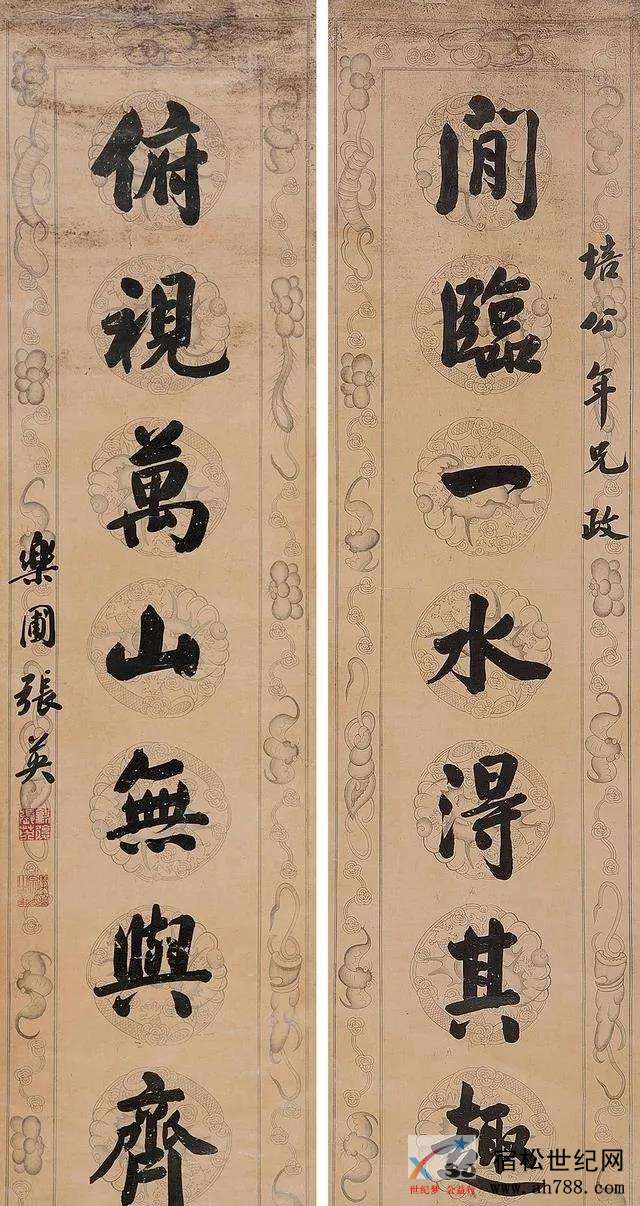 培公年兄政
閒臨一水得其趣
俯視萬山無與齊
樂圃張英
宿松世纪网
www.ah788.com
世纪梦 公益行